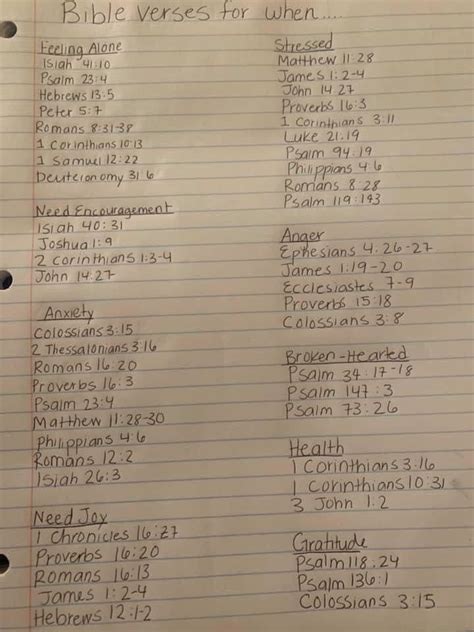 Bible verses for when....
Feeling Alone
Isiah 41:10
Psalm 23:4
Hebrews 13:5
Peter 5:7
Romans 8:31-38
1 Corinthians 10:13
1 Samuel 12:22
Deuteronomy 31:6
Need Encouragement
Isiah 40:31
Joshua 1:9
2 Corinthians 1:3-4
John 14:27
Anxiety
Colossians 3:15
2 Thessalonians 3:16
Romans 16:20
Proverbs 16:3
Psalm 23:4
Matthew 11:28-30
Philippians 4:6
Romans 12:2
Isiah 26:3
Need Joy
1 Chronicles 16:27
Proverbs 16:20
Romans 16:13
James 1:2-4
Hebrews 12:1-2
Stressed
Matthew 11:28
James 1:2-4
John 14:27
Proverbs 16:3
1 Corinthians 3:11
Luke 21:19
Psalm 94:19
Philippians 4:6
Romans 8:28
Psalm 119:143
Anger
Ephesians 4:26-27
James 1:19-20
Ecclesiastes 7-9
Proverbs 15:18
Colossians 3:8
Broken-Hearted
Psalm 34:17-18
Psalm 147:3
Psalm 73:26
Health
1 Corinthians 3:16
1 Corinthians 10:31
3 John 1:2
Gratitude
Psalm 118.24
Psalm 136:1
Colossians 3:15